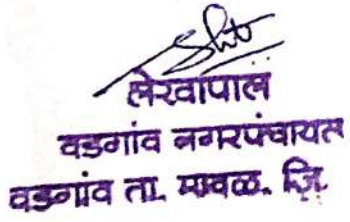 लेखापाल
वडगांव नगरपंचायत
वडगांव ता. मावळ. जि.